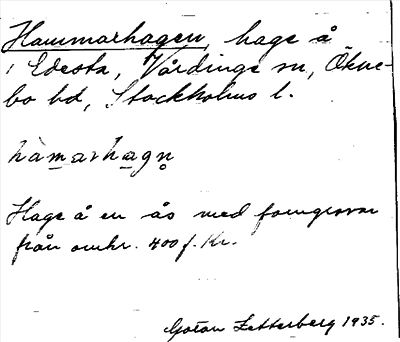 Hammarhagen, hage å
i Edesta, Vårdinge sn, Ökne-
bo hd, Stockholms l.
hàmarhagn̥
Hage å en ås med forngravar
från omkr. 400 f. Kr.
Götan Zetterberg 1935.